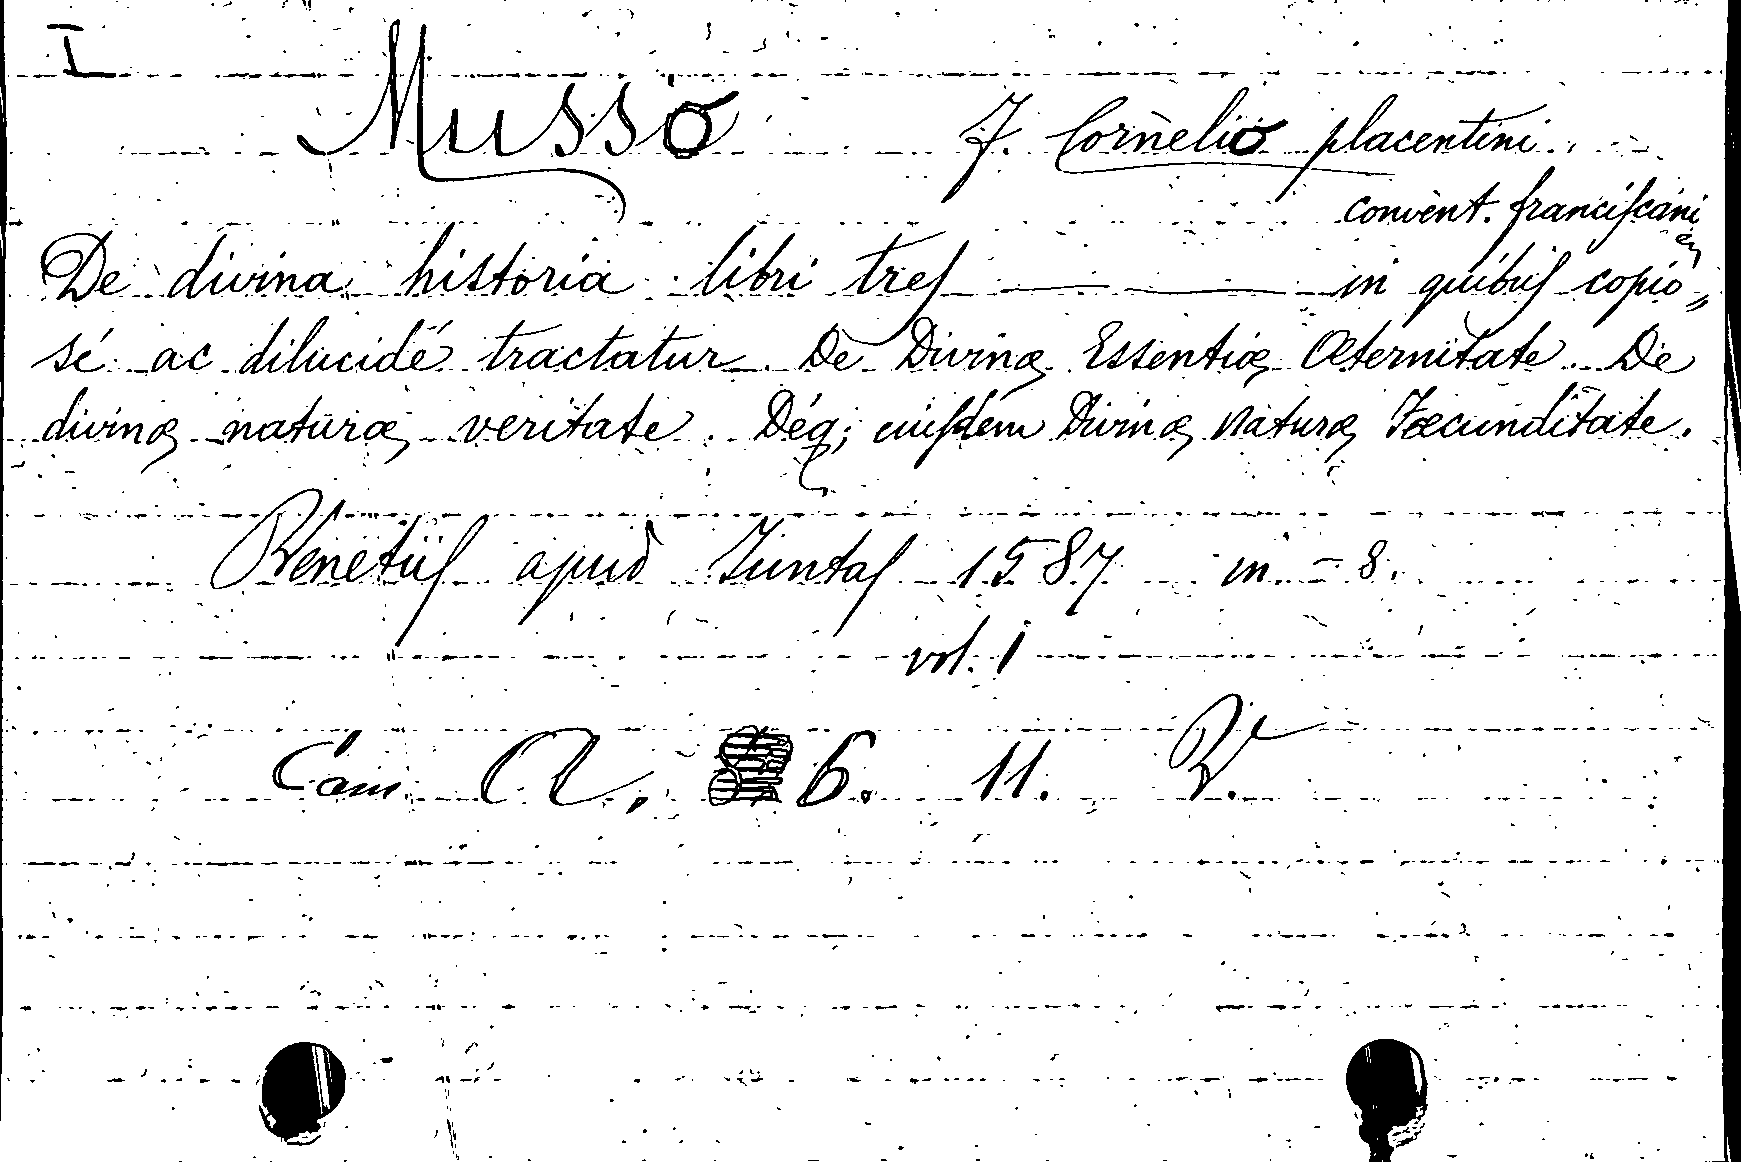 I
Musso F. Cornelio placentini
convent. franciscani
De divina historia libri tres in quibus copio„
sé ac dilucidé tractatur De Divinæ Essentiæ Æternitate De
divinæ naturæ veritate. Déq; eiusdem Divinæ Naturæ Fœcunditate.
Venetiis apud Iuntas 1587 in - 8.
vol. 1
Cam A, 6. 11.